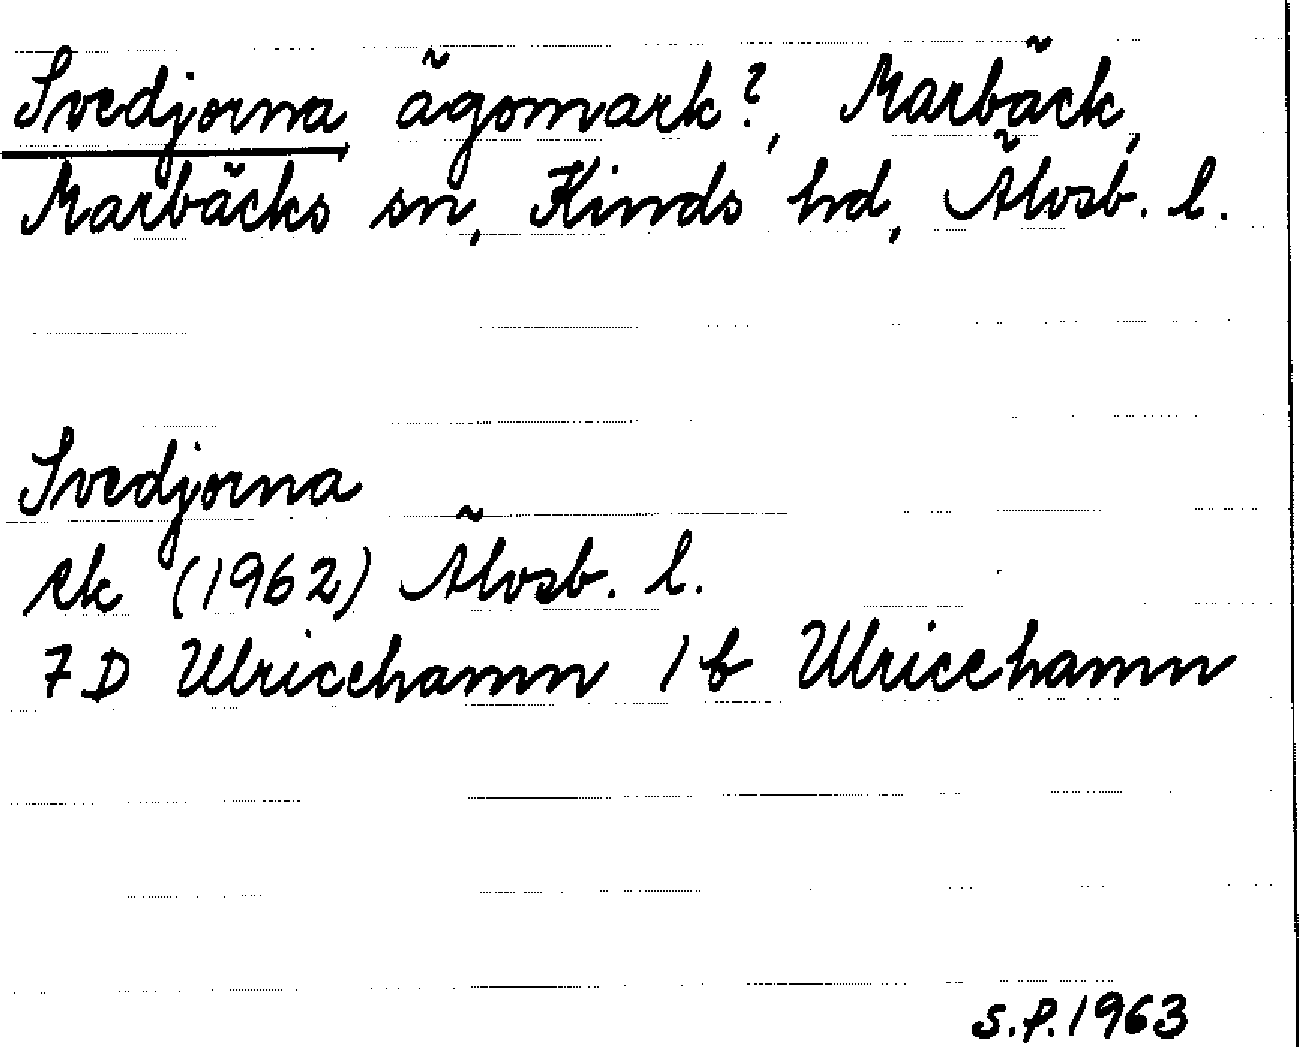 Svedjorna ägomark?, Marbäck,
Marbäcks sn, Kinds hd, Älvsb. l.
Svedjorna
ek (1962) Älvsb. l.
7 D Ulricehamn 1 b Ulricehamn
S.P. 1963